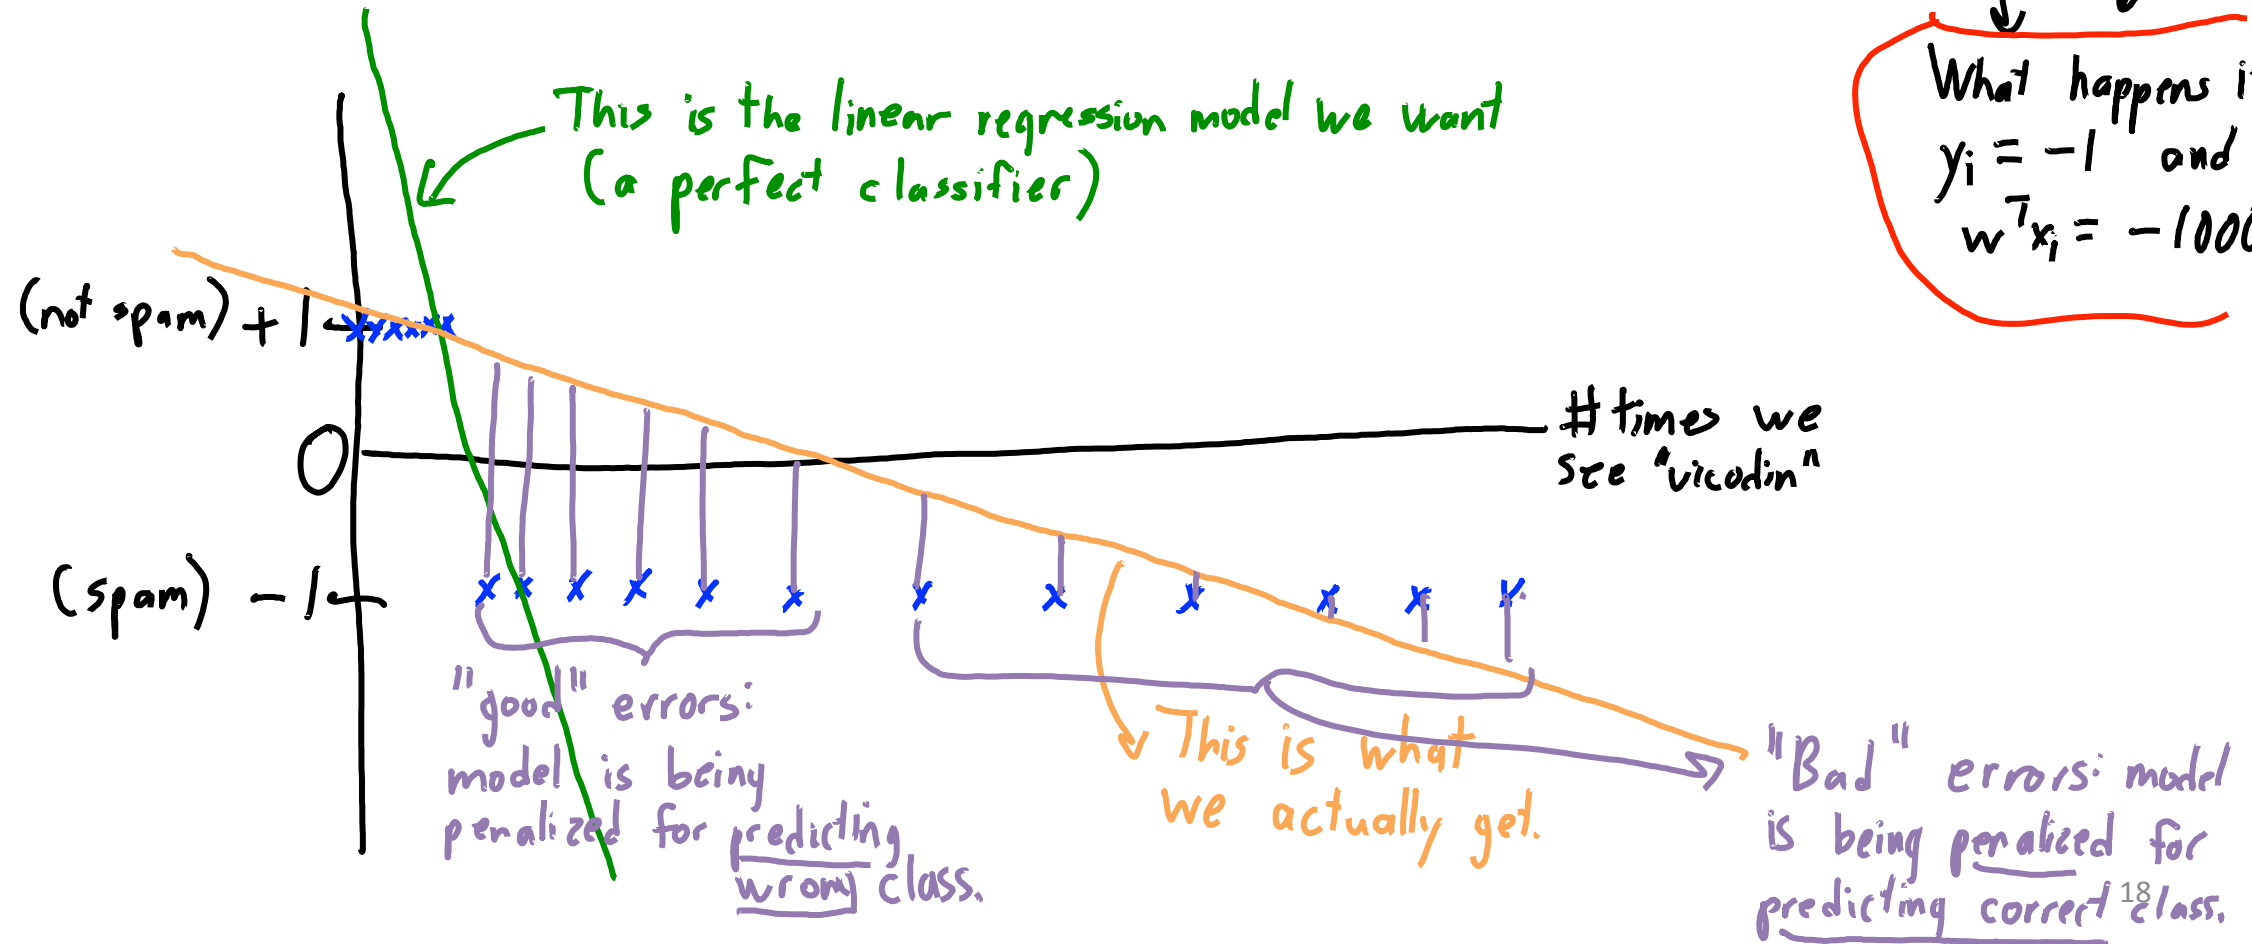 This is the linear regression model we want
(a perfect classifier)
What happens i
yᵢ = -1 and
wᵀxᵢ = -1000
(not spam) +1
0
(spam) -1
# times we
see "vicodin"
"good" errors:
model is being
penalized for predicting
wrong class.
This is what
we actually get.
"Bad" errors: model
is being penalized for
predicting correct class.
18